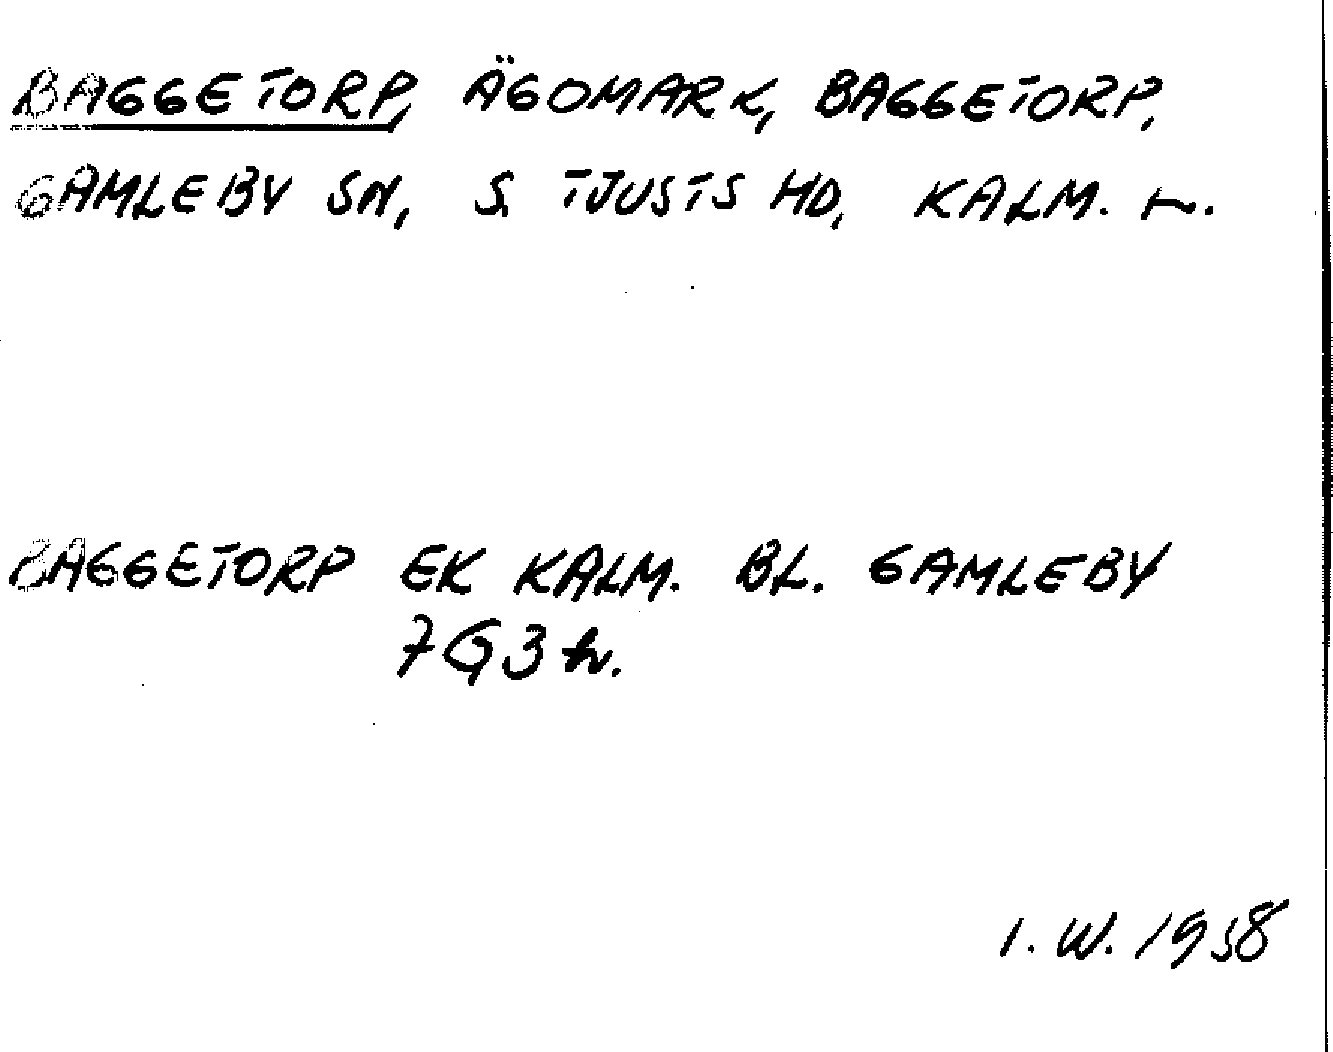 BAGGETORP, ÄGOMARK, BAGGETORP,
GAMLEBY SN, S. TJUSTS HD, KALM. L.
BAGGETORP EK KALM. BL. GAMLEBY
7G3h.
I. W. 1958